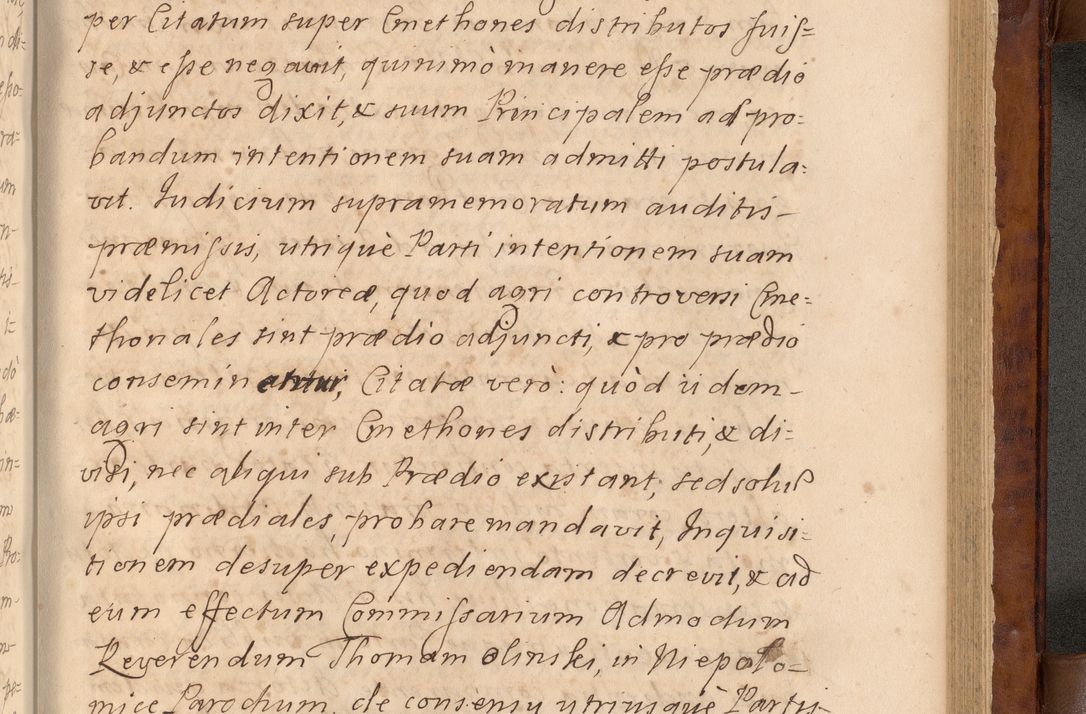 per Citatum super Cmethones distributos fuis=
se, & esse negavit, quinimò manere esse prædio
adjunctos dixit, & suum Principalem ad pro=
bandum intentionem suam admitti postula=
vit. Judicium supramemoratum auditis
præmissis, utriquè Parti intentionem suam
videlicet Actoreæ, quod agri controversi Cme=
thonales sint prædio adjuncti, & pro prædio
conseminantur, Citatæ verò: quòd iidem
agri sint inter Cmethones distributi, & di=
visi, nec aliqui sub Prædio existant, sed soli
ipsi prædiales, probare mandavit, Inquisi=
tionem desuper expediendam decrevit, & ad
eum effectum Commissarium Admodum
Reverendum Thomam Olinski, in Niepolo=
mice Parochum, de consensu utriusquè Partis